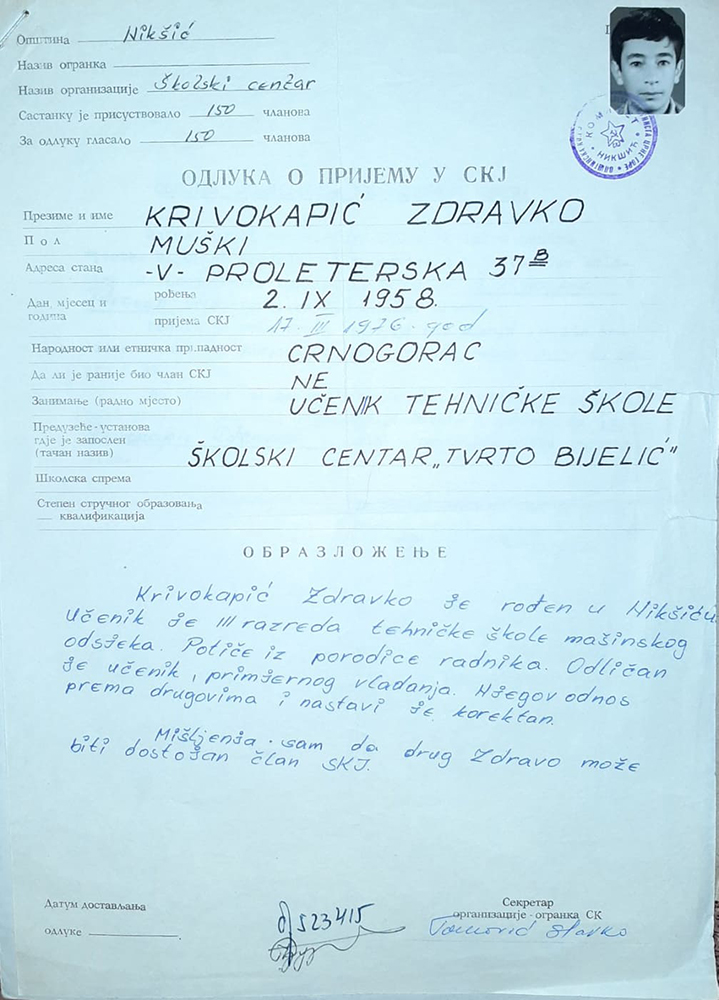 Општина Nikšić
Назив огранка
Назив организације Školski centar
Састанку је присуствовало 150 чланова
За одлуку гласало 150 чланова
КОМИТЕТ
НИКШИЋ
ОДЛУКА О ПРИЈЕМУ У СКЈ
Презиме и име KRIVOKAPIĆ ZDRAVKO
Пол MUŠKI
Адреса стана -V- PROLETERSKA 37B
Дан, мјесец и година
рођења 2. IX 1958.
пријема СКЈ 17. III 1976. god
Народност или етничка припадност CRNOGORAC
Да ли је раније био члан СКЈ NE
Занимање (радно мјесто) UČENIK TEHNIČKE ŠKOLE
Предузеће-установа
гдје је запослен
(тачан назив) ŠKOLSKI CENTAR „TVRTO BIJELIĆ"
Школска спрема
Степен стручног образовања
— квалификација
ОБРАЗЛОЖЕЊЕ
Krivokapić Zdravko je rođen u Nikšiću
Učenik je III razreda tehničke škole mašinskog
odsjeka. Potiče iz porodice radnika. Odličan
je učenik, primjernog vladanja. Njegov odnos
prema drugovima i nastavi je korektan.
Mišljenja sam da drug Zdravo može
biti dostojan član SKJ.
Датум достављања
одлуке
523415
Секретар
организације - огранка СК
Tomović Slavko